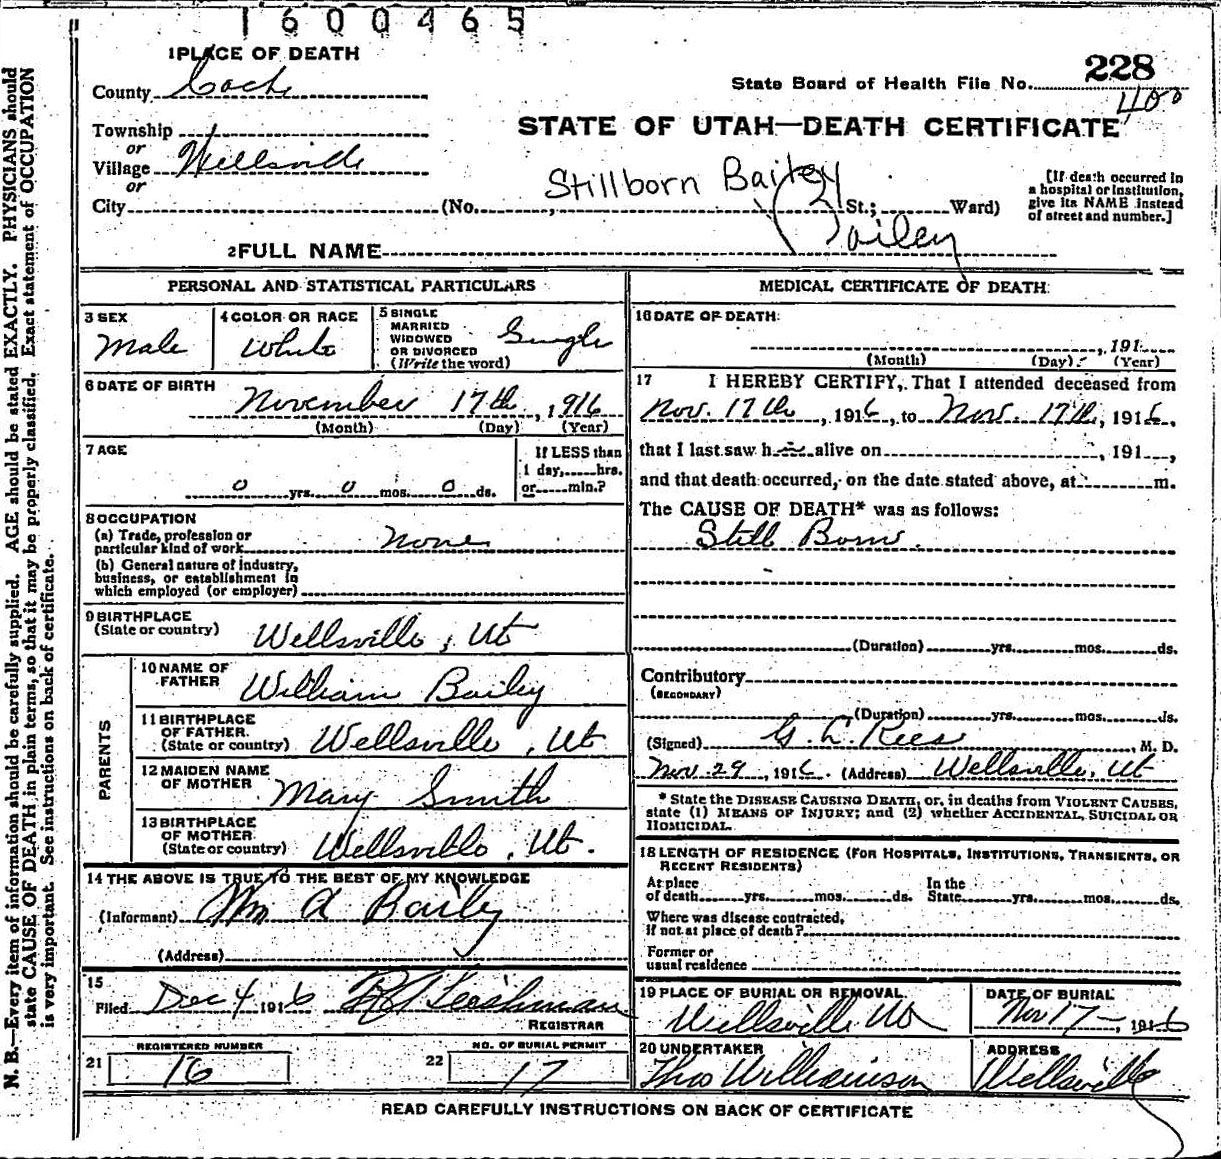 1600465
1 PLACE OF DEATH
County Cache
Township
or
Village Wellsville
or
City (No. , St.; Ward)
State Board of Health File No. 228
400
STATE OF UTAH—DEATH CERTIFICATE
Stillborn Bailey
[If death occurred in
a hospital or institution,
give its NAME instead
of street and number.]
2 FULL NAME Bailey
PERSONAL AND STATISTICAL PARTICULARS
3 SEX
Male
4 COLOR OR RACE
White
5 SINGLE
MARRIED
WIDOWED
OR DIVORCED
(Write the word)
Single
6 DATE OF BIRTH
November 17th, 1916
(Month) (Day) (Year)
7 AGE
0 yrs. 0 mos. 0 ds.
If LESS than
1 day, hrs.
or min.?
8 OCCUPATION
(a) Trade, profession or
particular kind of work None
(b) General nature of industry,
business, or establishment in
which employed (or employer)
9 BIRTHPLACE
(State or country) Wellsville, Ut
PARENTS
10 NAME OF
FATHER William Bailey
11 BIRTHPLACE
OF FATHER.
(State or country) Wellsville, Ut
12 MAIDEN NAME
OF MOTHER Mary Smith
13 BIRTHPLACE
OF MOTHER
(State or country) Wellsville, Ut.
14 THE ABOVE IS TRUE TO THE BEST OF MY KNOWLEDGE
(Informant) Wm A Baily
(Address)
15
Filed Dec 4 1916 Leishman
REGISTRAR
REGISTERED NUMBER
21 16
NO. OF BURIAL PERMIT
22 17
MEDICAL CERTIFICATE OF DEATH
16 DATE OF DEATH
, 191
(Month) (Day) (Year)
17 I HEREBY CERTIFY, That I attended deceased from
Nov. 17th, 1916, to Nov. 17th, 1916,
that I last saw h alive on , 191 ,
and that death occurred, on the date stated above, at m.
The CAUSE OF DEATH* was as follows:
Still Born.
(Duration) yrs. mos. ds.
Contributory
(SECONDARY)
(Duration) yrs. mos. ds.
(Signed) G. L. Rees, M. D.
Nov. 29, 1916. (Address) Wellsville, Ut
* State the DISEASE CAUSING DEATH, or, in deaths from VIOLENT CAUSES,
state (1) MEANS OF INJURY; and (2) whether ACCIDENTAL, SUICIDAL OR
HOMICIDAL.
18 LENGTH OF RESIDENCE (FOR HOSPITALS, INSTITUTIONS, TRANSIENTS, OR
RECENT RESIDENTS)
At place
of death yrs. mos. ds.
In the
State yrs. mos. ds.
Where was disease contracted,
if not at place of death?
Former or
usual residence
19 PLACE OF BURIAL OR REMOVAL
Wellsville Ut
DATE OF BURIAL
Nov 17 , 1916
20 UNDERTAKER
Thos Williamson
ADDRESS
Wellsville
READ CAREFULLY INSTRUCTIONS ON BACK OF CERTIFICATE
N. B.—Every item of information should be carefully supplied. AGE should be stated EXACTLY. PHYSICIANS should
state CAUSE OF DEATH in plain terms, so that it may be properly classified. Exact statement of OCCUPATION
is very important. See instructions on back of certificate.